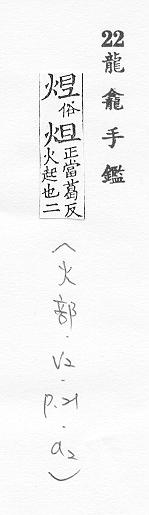 22 龍龕手鑑
俗炟正當葛反
火起也二
(火部.V2.p.21.a2)